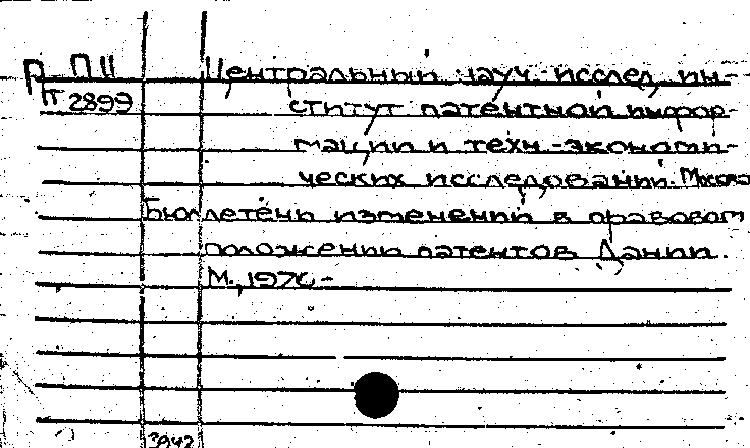 П II Центральный науч.-исслед. ин-
т 2899 ститут патентной инфор-
мации и техн.-экономи-
ческих исследований. Москва
Бюллетень изменений в правовом
положении патентов Дании.
М., 197